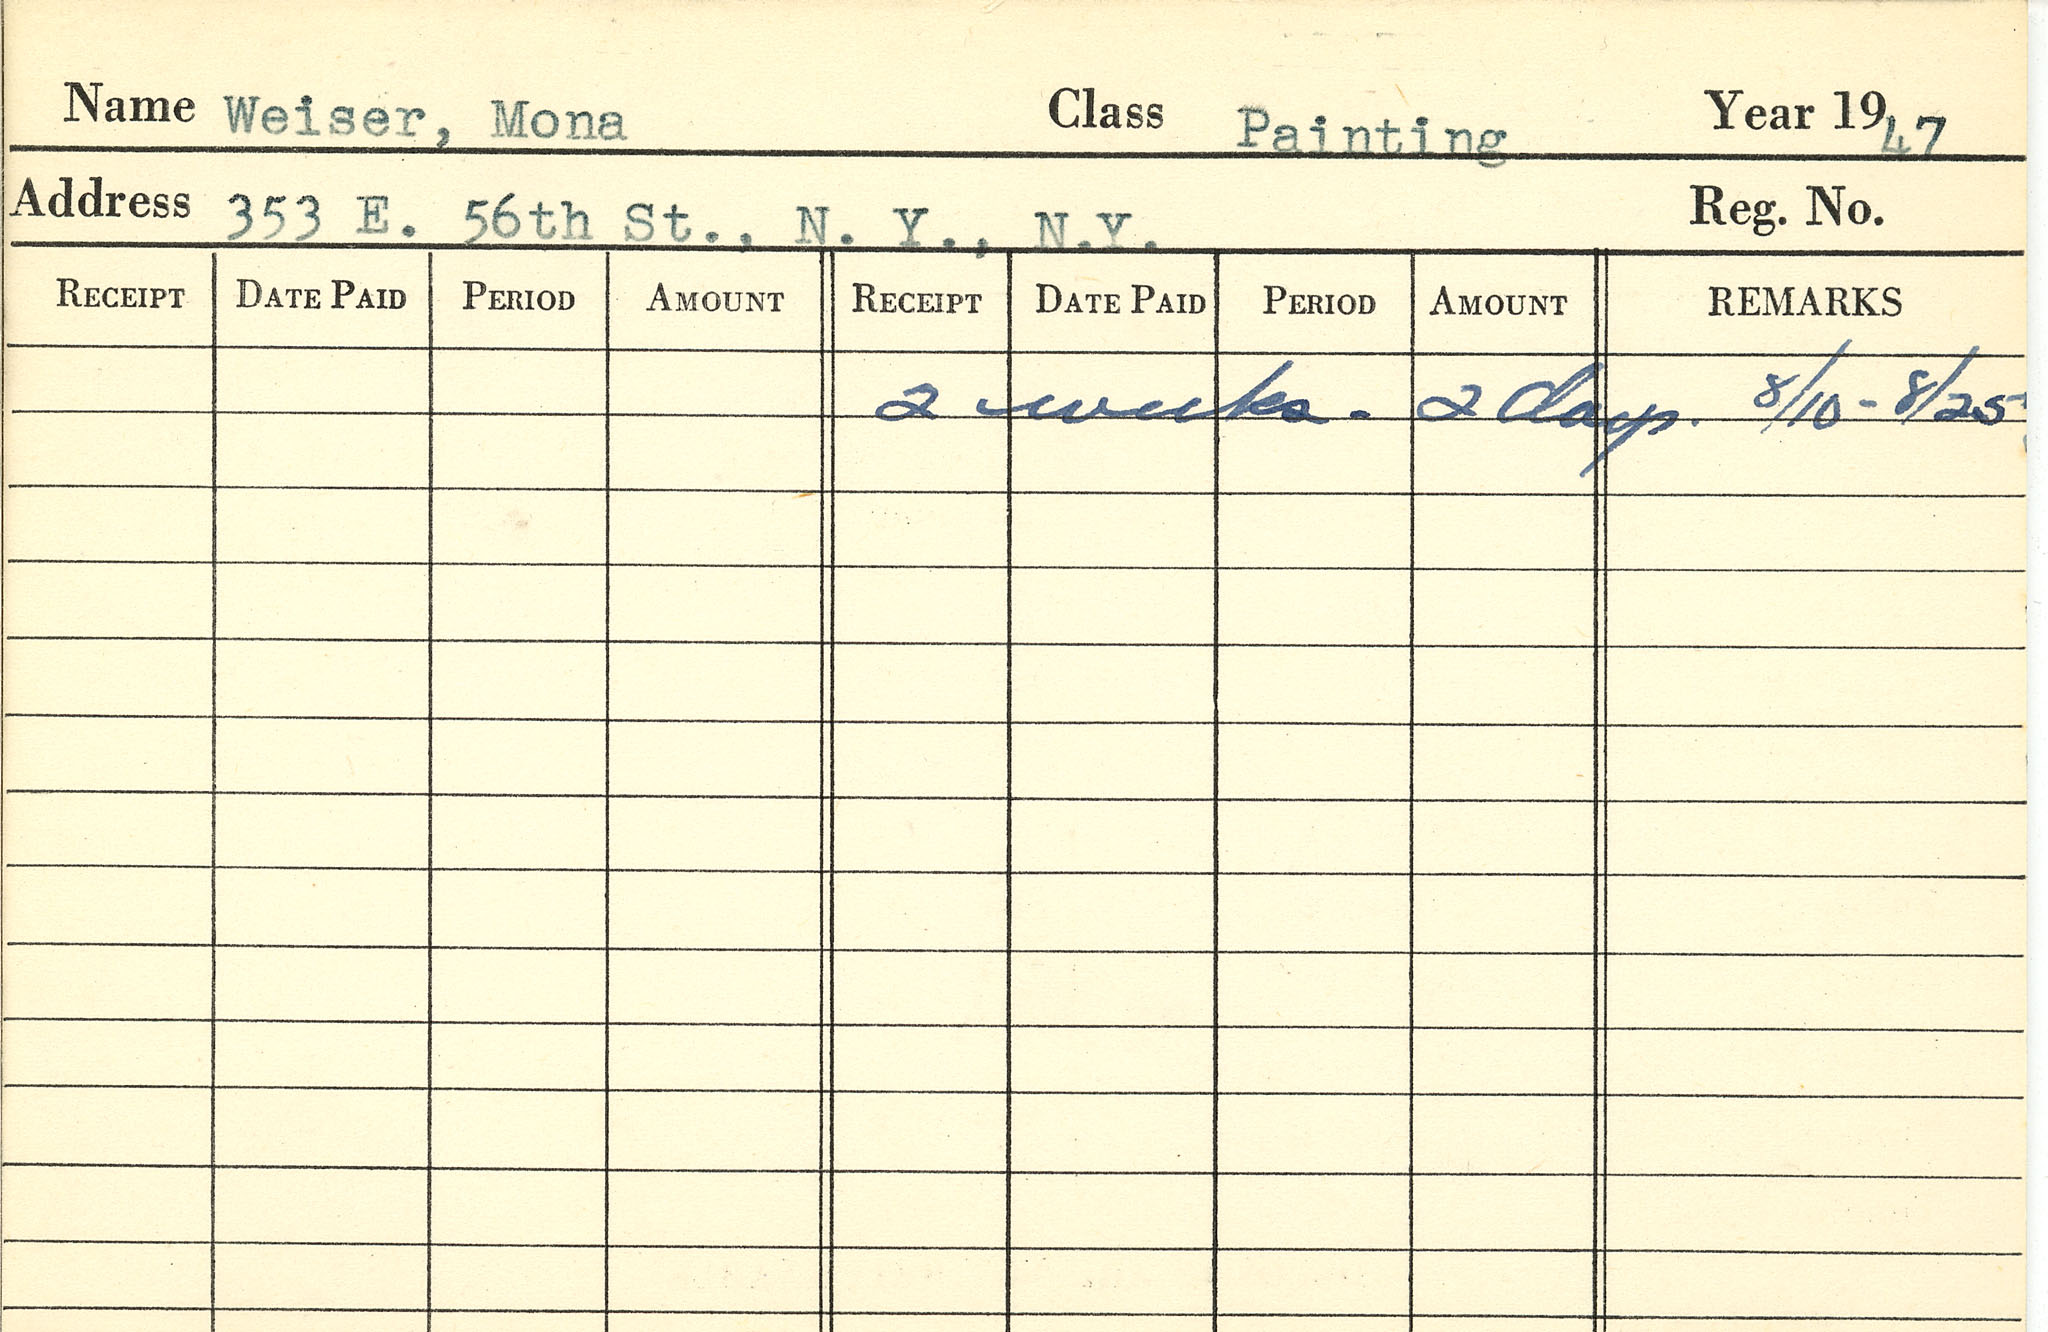 Name Weiser, Mona Class Painting Year 1947
Address 353 E. 56th St., N. Y., N.Y. Reg. No.
RECEIPT DATE PAID PERIOD AMOUNT RECEIPT DATE PAID PERIOD AMOUNT REMARKS
2 weeks. 2 days. 8/10 - 8/25